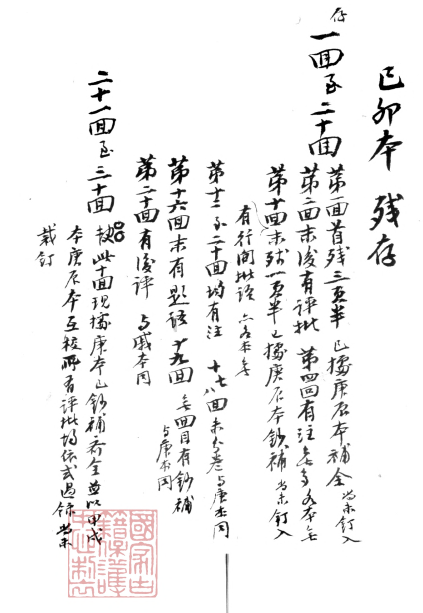 己卯本 残存
存
一回至二十回
第一回首残三页半 已據庚辰本補全 尚未釘入
第二回末後有評批 第四回有注 各本無
第十回末残一页半 已據庚辰本鈔補 尚未釘入
有行間批語 各本無
第十二至二十回均有注 十七八回未分卷 与庚本同
第十六回末有題語 十九回無回目 有鈔補 与庚本同
第二十回有後評 与戚本同
二十一回至三十回 缺 此十回現據庚本已鈔補齊全 並以甲戌
本庚辰本互校 所有評批均依式過錄 尚未
裁釘
國家古籍